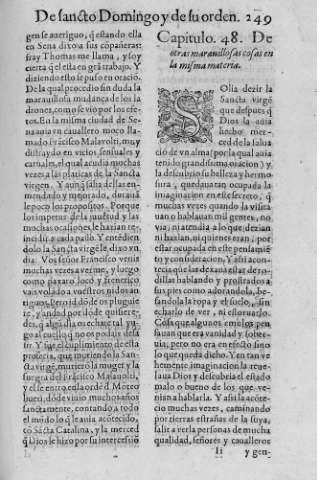 De sancto Domingo y de su orden. 249
gen se aueriguo, q̃ estando ella
en Sena dixo a sus cõpañeras:
fray Thomas me llama, y soy
cierta q̃ el esta en grã trabajo. Y
diziendo esto se puso en oraciõ.
De la qual procedio sin duda la
marauillosa mudança de los la
drones, como se vio por los efe
tos. En la misma ciudad de Se-
na auia vn cauallero moço lla-
mado Frãcisco Malauolti, muy
distraydo en vicios sensuales y
carnales, el qual acudia muchas
vezes a las platicas de la Sancta
virgen. Y aunq̃ salia dellas en-
mendado y mejorado, duraua
le poco los propositos. Porque
los impetus de la juuetud y las
muchas ocasiones le hazian re-
incidir a cada passo. Y entẽdien
dolo la Sancta virgẽ le dixo vn
dia. Vos señor Francisco venis
muchas vezes a verme, y luego
como paxaro loco y frenetico
vays volado a vuestros nidos an
tiguos. Pero id dõde os pluguie
re, y andad por dõde quisiere-
des, q̃ algũ dia os echare tal yu-
go al cuello q̃ no os podays salir
Y fue el cumplimiento de esta
profecia, que muriendo la San-
cta virgẽ, murierõ la muger y la
suegra del Frãcisco Malauolti,
y el se entro en la ordẽ d̃ Monte
liuete, dõde viuio muchos años
sanctamente, contando a todo
el mũdo lo q̃ le auia acõtecido,
cõ Sãcta Catalina, y la merced
q̃ Dios le hizo por su intercessiõ
Capitulo. 48. De
otras marauillosas cosas en
la misma materia.
Solia dezir la
Sancta virgẽ
que despues q̃
Dios la auia
hecho mer-
ced de la salua
ciõ de vn alma (por la qual auia
tenido grandissima oracion) y
la descubrio su belleza y hermo
sura, quedaua tan ocupada la
imaginacion en este secreto, q̃
muchas vezes quando la visita
uan o hablauan mil gentes, no
via, ni atendia a lo que dezian
ni hazian, ni quienes eran, por
estar ocupada en este pensamiẽ
to y consideracion, Y assi acon-
tecia que las dexaua estar de ro-
dillas hablando y prostrados a
sus pies como adorandola, be-
sandola la ropa y el suelo, sin
echarlo de ver, ni estoruarlo.
Cosa que algunos emulos pen
sauan que era vanidad y sober-
uia, pero no era en efecto sino
lo que queda dicho. Y en tan ve
hemente imaginacion la reue-
laua Dios y descubria el estado
malo o bueno de los que ve-
nian a hablarla. Y assi la acõte-
cio muchas vezes, caminando
por tierras estrañas de la suya,
salir a verla personas de mucha
qualidad, señores y caualleros
Ii y gen-